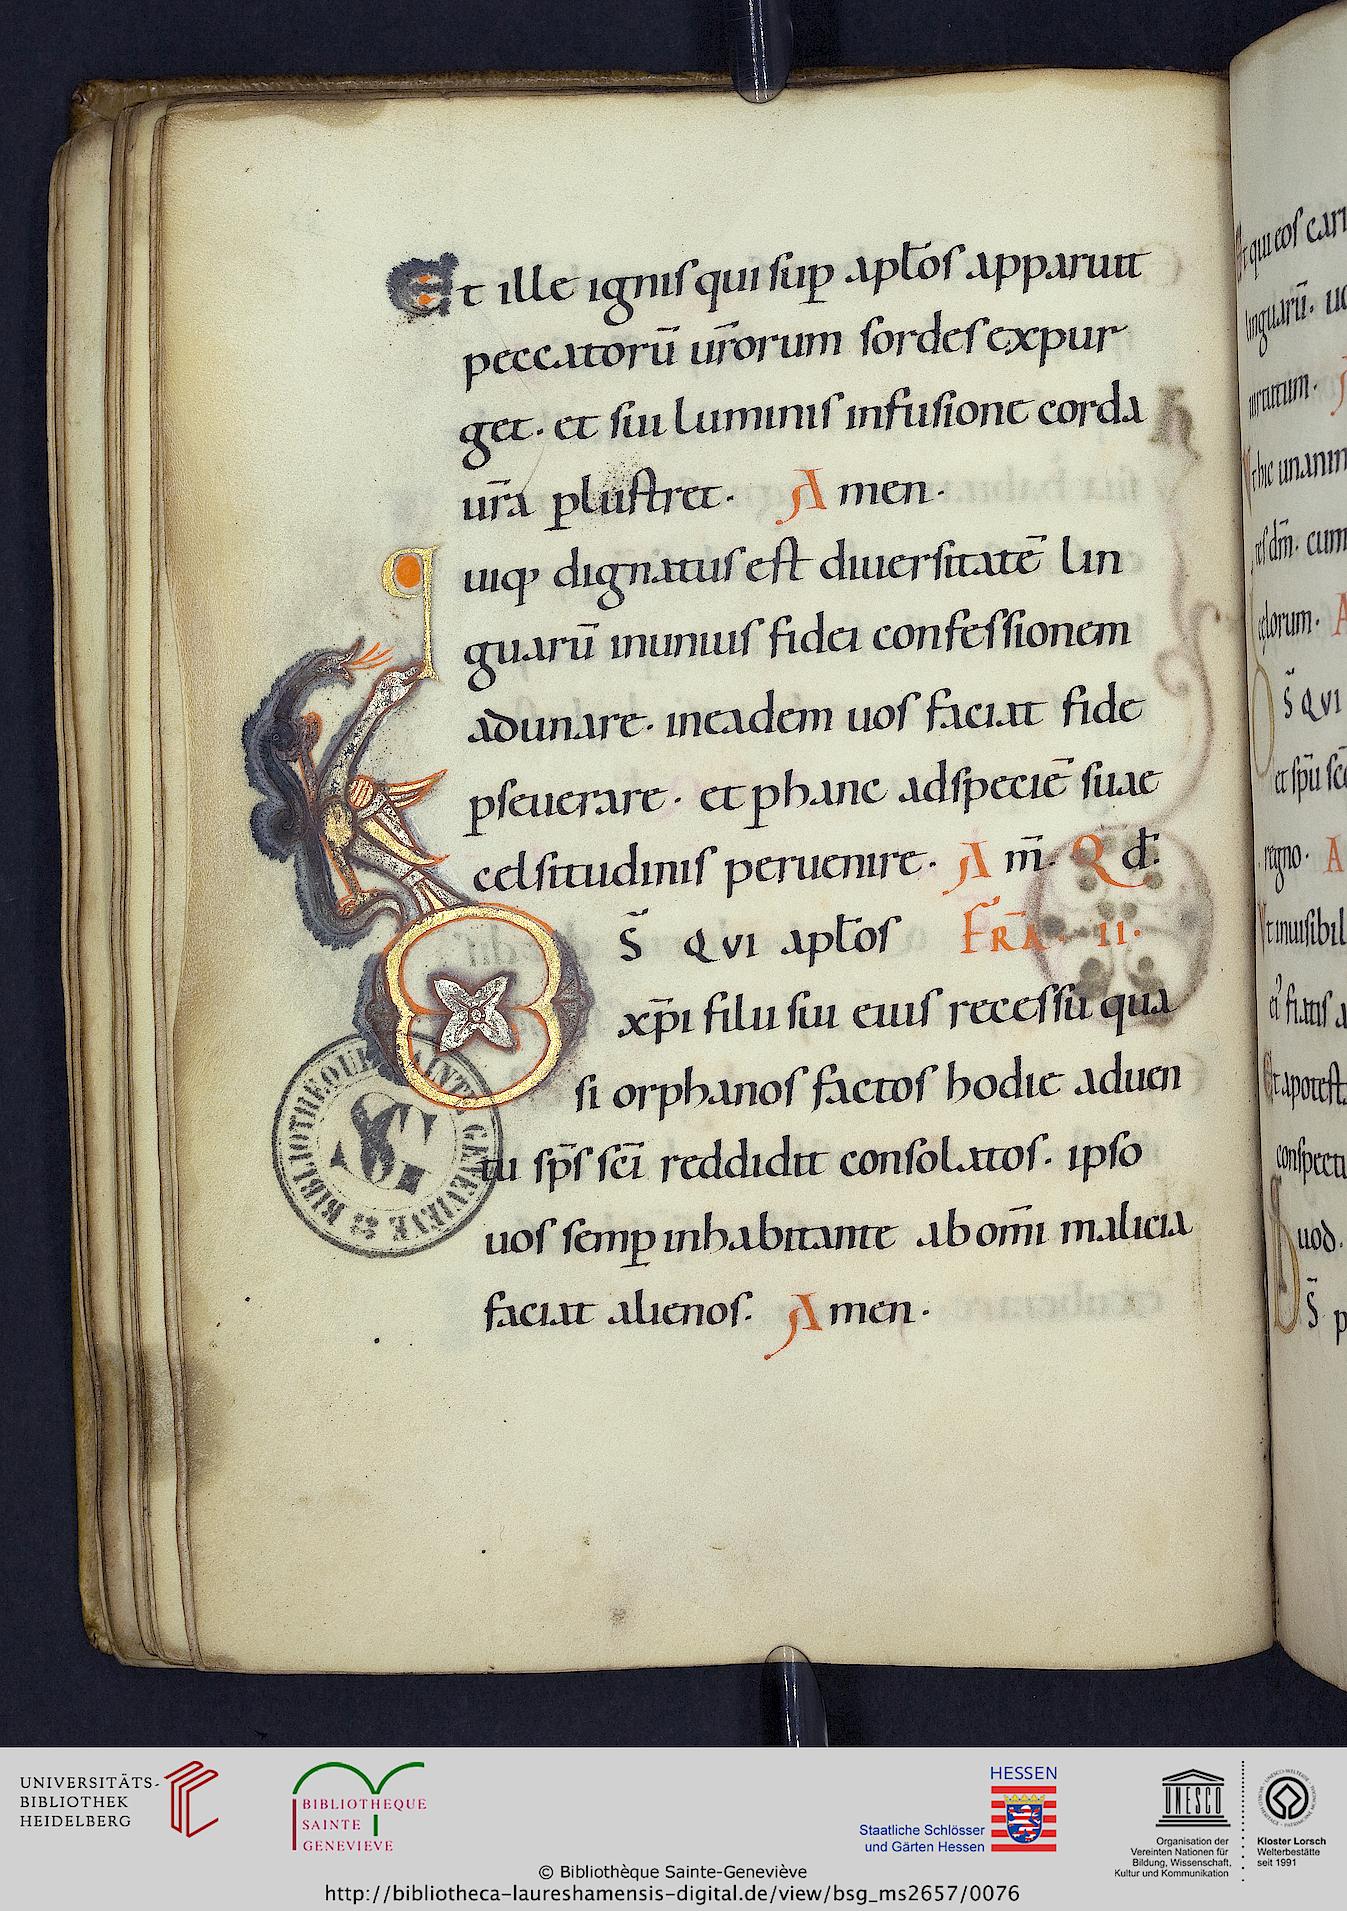 Et ille ignis qui sup̱ apl̄os apparuit
peccatorū ur̄orum sordes expur
get. et sui luminis infusione corda
ur̄a ꝑlustret. Amen.
quiq; dignatus est diuersitatē lin
guarū inunius fidei confessionem
adunare. ineadem uos faciat fide
ꝑseuerare. et ꝑhanc adspeciē suae
celsitudinis peruenire. Am̄. Qd̄.
DS̄ QVI apl̄os FR̄A. II.
xp̄i filii sui eius recessu qua
si orphanos factos hodie aduen
tu sp̄s sc̄i reddidit consolatos. ipso
uos semꝑ inhabitante ab om̄i malicia
faciat alienos. Amen.
BIBLIOTHÈQUE SAINTE GENEVIEVE
SG
t qui eos cari
linguarū. uo
uirtutum.
t hic unanim
res dm̄. cum
celorum. A
DS̄ QVI
et spū sc̄o
regno. A
Vt inuisibil
ei' fiatis a
Et apotest
conspectu
Quod.
DS̄ p
UNIVERSITÄTS-
BIBLIOTHEK
HEIDELBERG
BIBLIOTHEQUE
SAINTE
GENEVIEVE
HESSEN
Staatliche Schlösser
und Gärten Hessen
UNESCO
Organisation der
Vereinten Nationen für
Bildung, Wissenschaft,
Kultur und Kommunikation
Kloster Lorsch
Welterbestätte
seit 1991
© Bibliothèque Sainte-Geneviève
http://bibliotheca-laureshamensis-digital.de/view/bsg_ms2657/0076